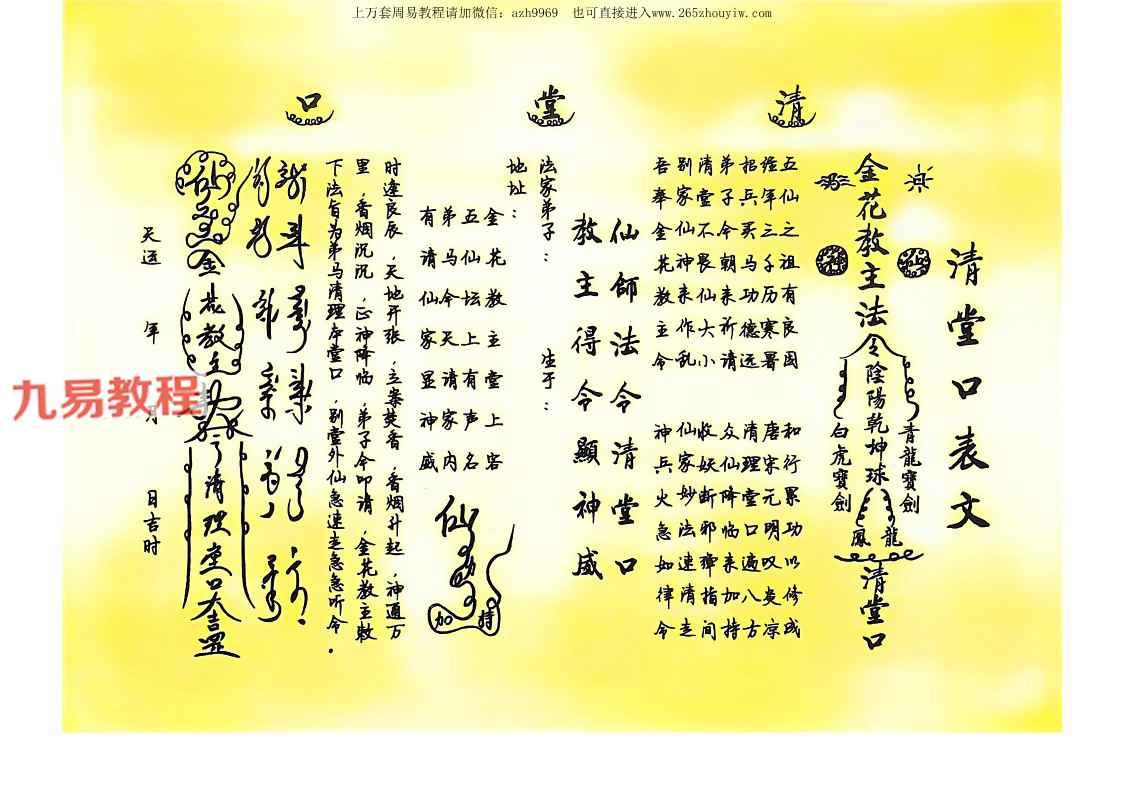 上万套周易教程请加微信：azh9969 也可直接进入www.265zhouyiw.com
清堂口
清堂口表文
金花教主法令陰陽乾坤球
青龍寶劍
白虎寶劍
龍
鳳
清堂口
五仙之祖有良因 和行累功以修成
经年三千历寒暑 唐宋元明叹炎凉
招兵买马功德远 清理堂口遍八方
弟子今朝来祈请 众仙降临来加持
清堂不畏仙大小 收妖断邪弹指间
别家仙神来作乱 仙家妙法速清走
吾奉金花教主令 神兵火急如律令
仙師法令清堂口
教主得令顯神威
法家弟子： 生于：
地址：
金花教主堂上客
五仙坛上有声名
弟马今天请家内
有请仙家显神威
仙
加持
时逢良辰，天地开张，立案焚香，香烟升起，神通万
里，香烟沉沉，正神降临，弟子今叩请，金花教主敕
下法旨为弟马清理本堂口，别堂外仙急速走急急听令.
仙
金花教主
清理堂口
天运 年 月 日吉时
九易教程